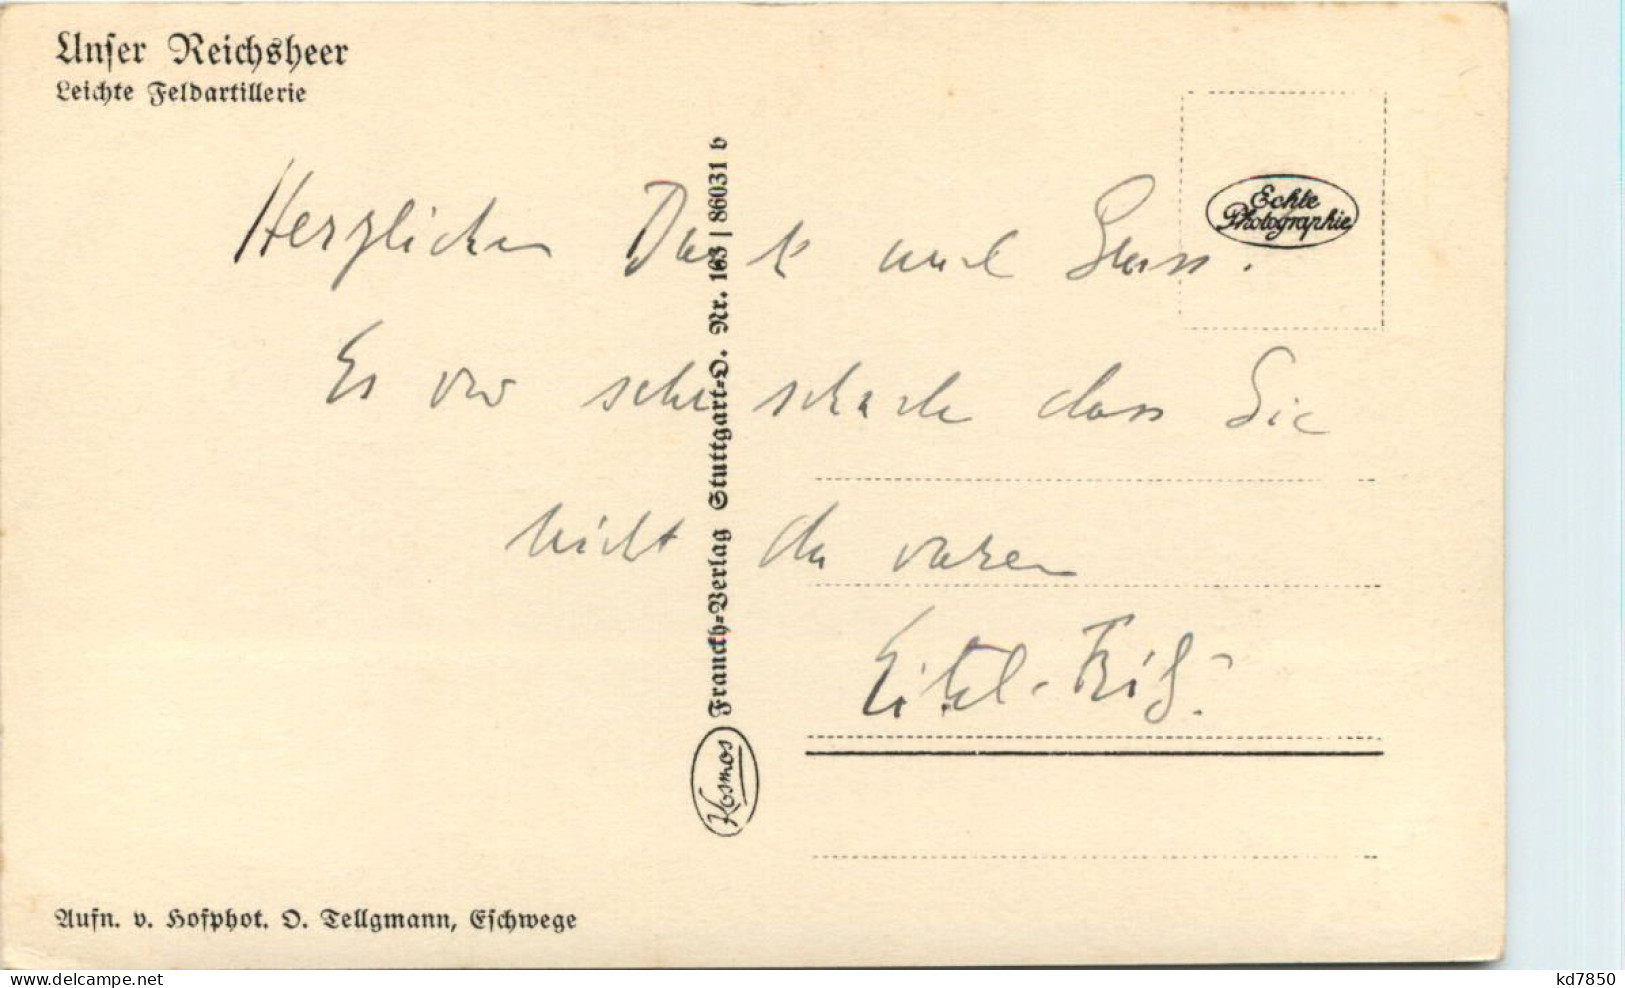 Unser Reichsheer
Leichte Feldartillerie
Echte
Photographie
Herzlichen Dank und Gruss.
Es war sehr schade dass Sie
nicht da waren
Eitel-Fritz.
Kosmos Franckh=Verlag Stuttgart=O. Nr. 163 | 86031 b
Aufn. v. Hofphot. O. Tellgmann, Eschwege
kd7850